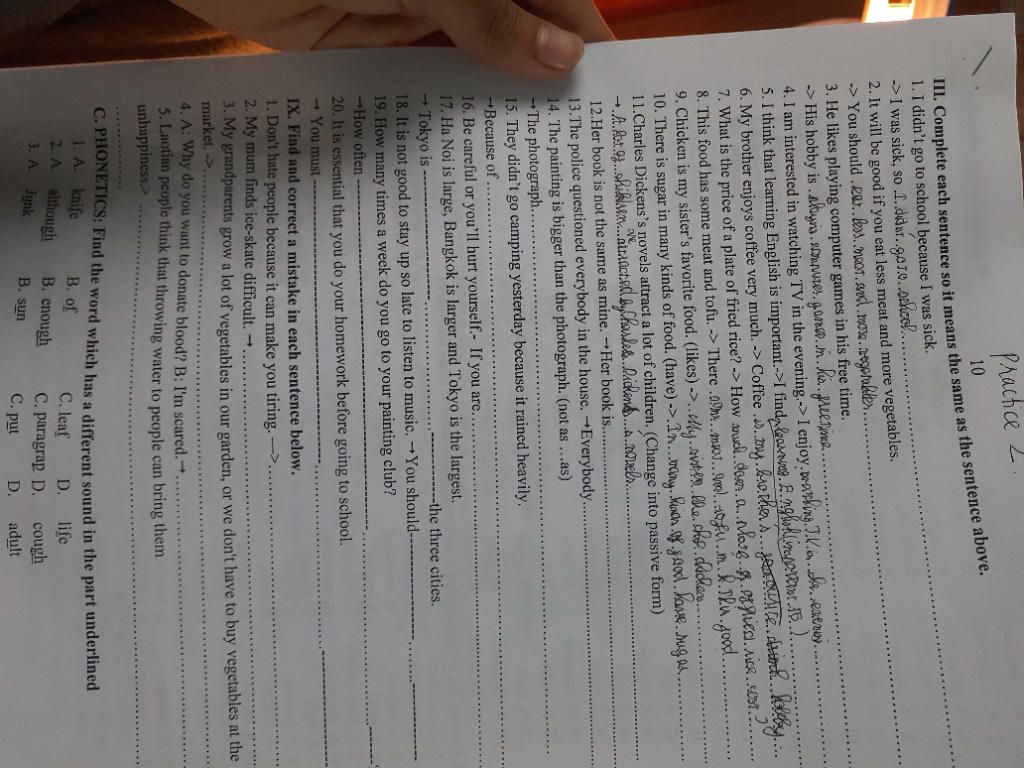 Practice 2
10
III. Complete each sentence so it means the same as the sentence above.
1. I didn't go to school because I was sick.
-> I was sick, so I didn't go to school
2. It will be good if you eat less meat and more vegetables.
-> You should eat less meat and more vegetables
3. He likes playing computer games in his free time.
-> His hobby is playing computer games in his freetime
4. I am interested in watching TV in the evening.-> I enjoy watching TV in the evening
5. I think that learning English is important.-> I find learning English important
6. My brother enjoys coffee very much. -> Coffee is my brother's favourite
7. What is the price of a plate of fried rice? -> How much does a plate of fried rice cost ?
8. This food has some meat and tofu -> There some meat and tofu in this food
9. Chicken is my sister's favorite food. (likes) -> My sister likes chicken
10. There is sugar in many kinds of food. (have) -> In many kinds of food have sugar
11.Charles Dickens's novels attract a lot of children. (Change into passive form)
→ A lot of children are attracted by Charles Dickens's novels
12.Her book is not the same as mine. →Her book is
13.The police questioned everybody in the house. →Everybody
14. The painting is bigger than the photograph. (not as …as)
→The photograph
15. They didn't go camping yesterday because it rained heavily.
→Because of
16. Be careful or you'll hurt yourself.- If you are
17. Ha Noi is large, Bangkok is larger and Tokyo is the largest.
→ Tokyo is the three cities.
18. It is not good to stay up so late to listen to music. →You should
19. How many times a week do you go to your painting club?
→How often
20. It is essential that you do your homework before going to school.
→ You must
IX. Find and correct a mistake in each sentence below.
1. Don't hate people because it can make you tiring. —>
2. My mum finds ice-skate difficult. →
3. My grandparents grow a lot of vegetables in our garden, or we don't have to buy vegetables at the
market. ->
4. A: Why do you want to donate blood? B: I'm scared.→
5. Laotian people think that throwing water to people can bring them
unhappiness>
C. PHONETICS: Find the word which has a different sound in the part underlined
1. A. knife B. of C. leaf D. life
2. A although B. enough C. paragrap D. cough
3. A. Junk B. sun C. put D. adult